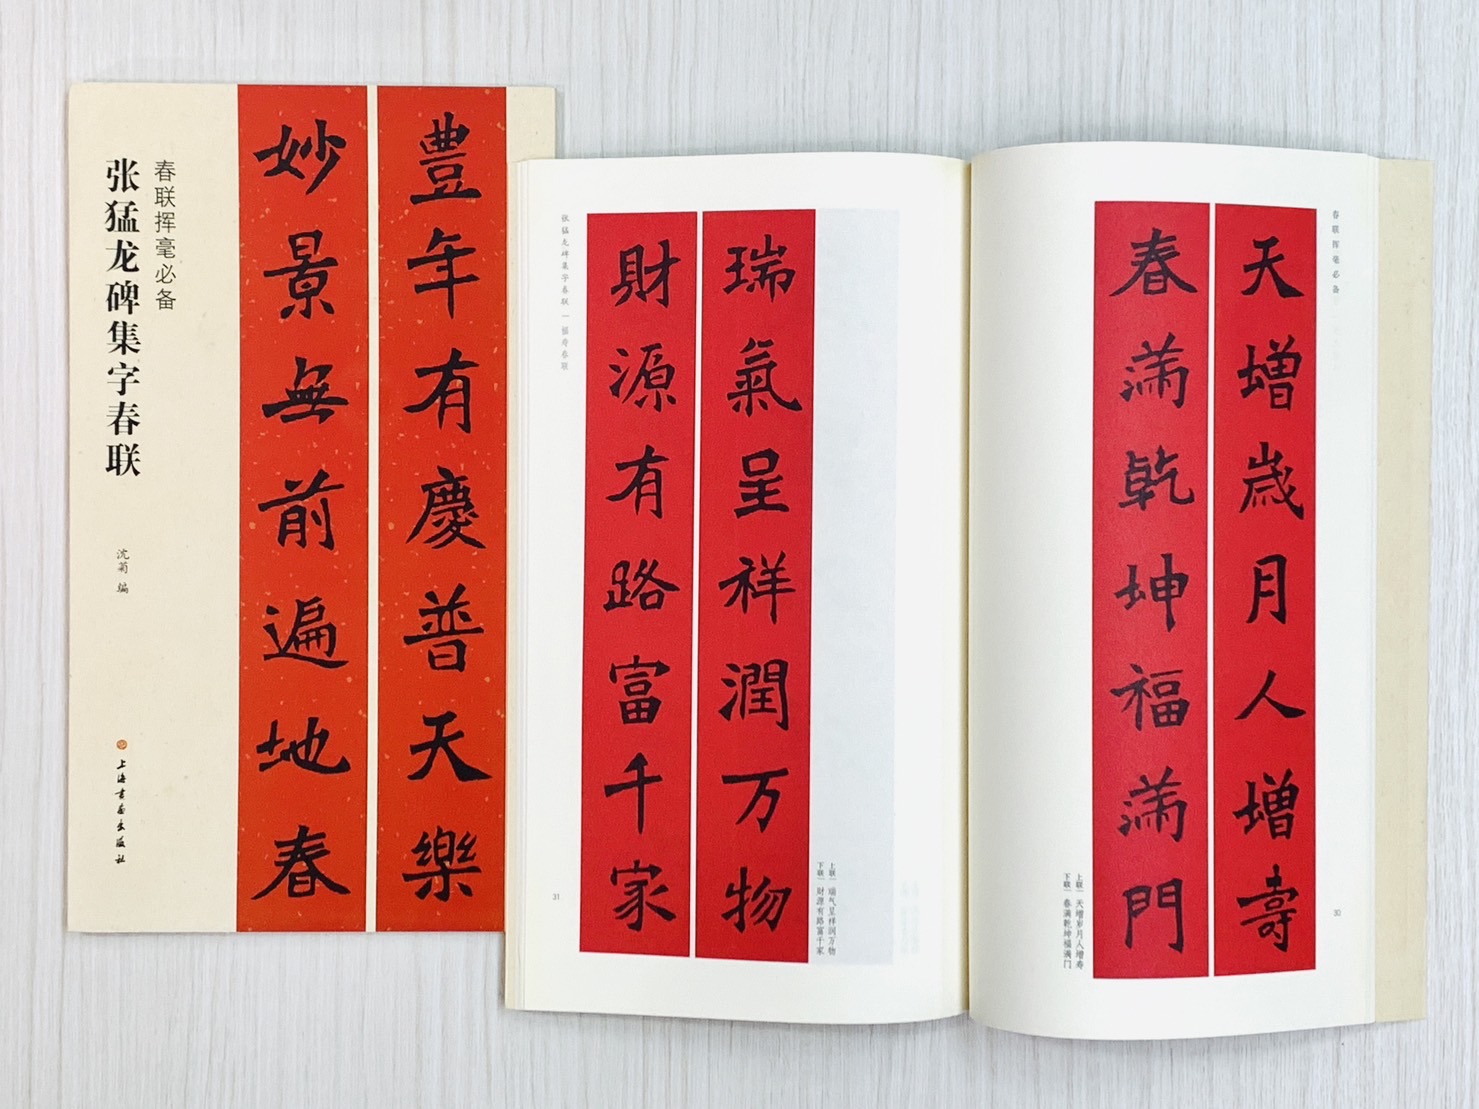 春联挥毫必备
张猛龙碑集字春联
沈菊 编
上海书画出版社
豐年有慶普天樂
妙景無前遍地春
春联挥毫必备
天增歲月人增壽
春滿乾坤福滿門
上联 天增岁月人增寿
下联 春满乾坤福满门
30
瑞氣呈祥潤万物
財源有路富千家
上联 瑞气呈祥润万物
下联 财源有路富千家
张猛龙碑集字春联 一 福寿春联
31